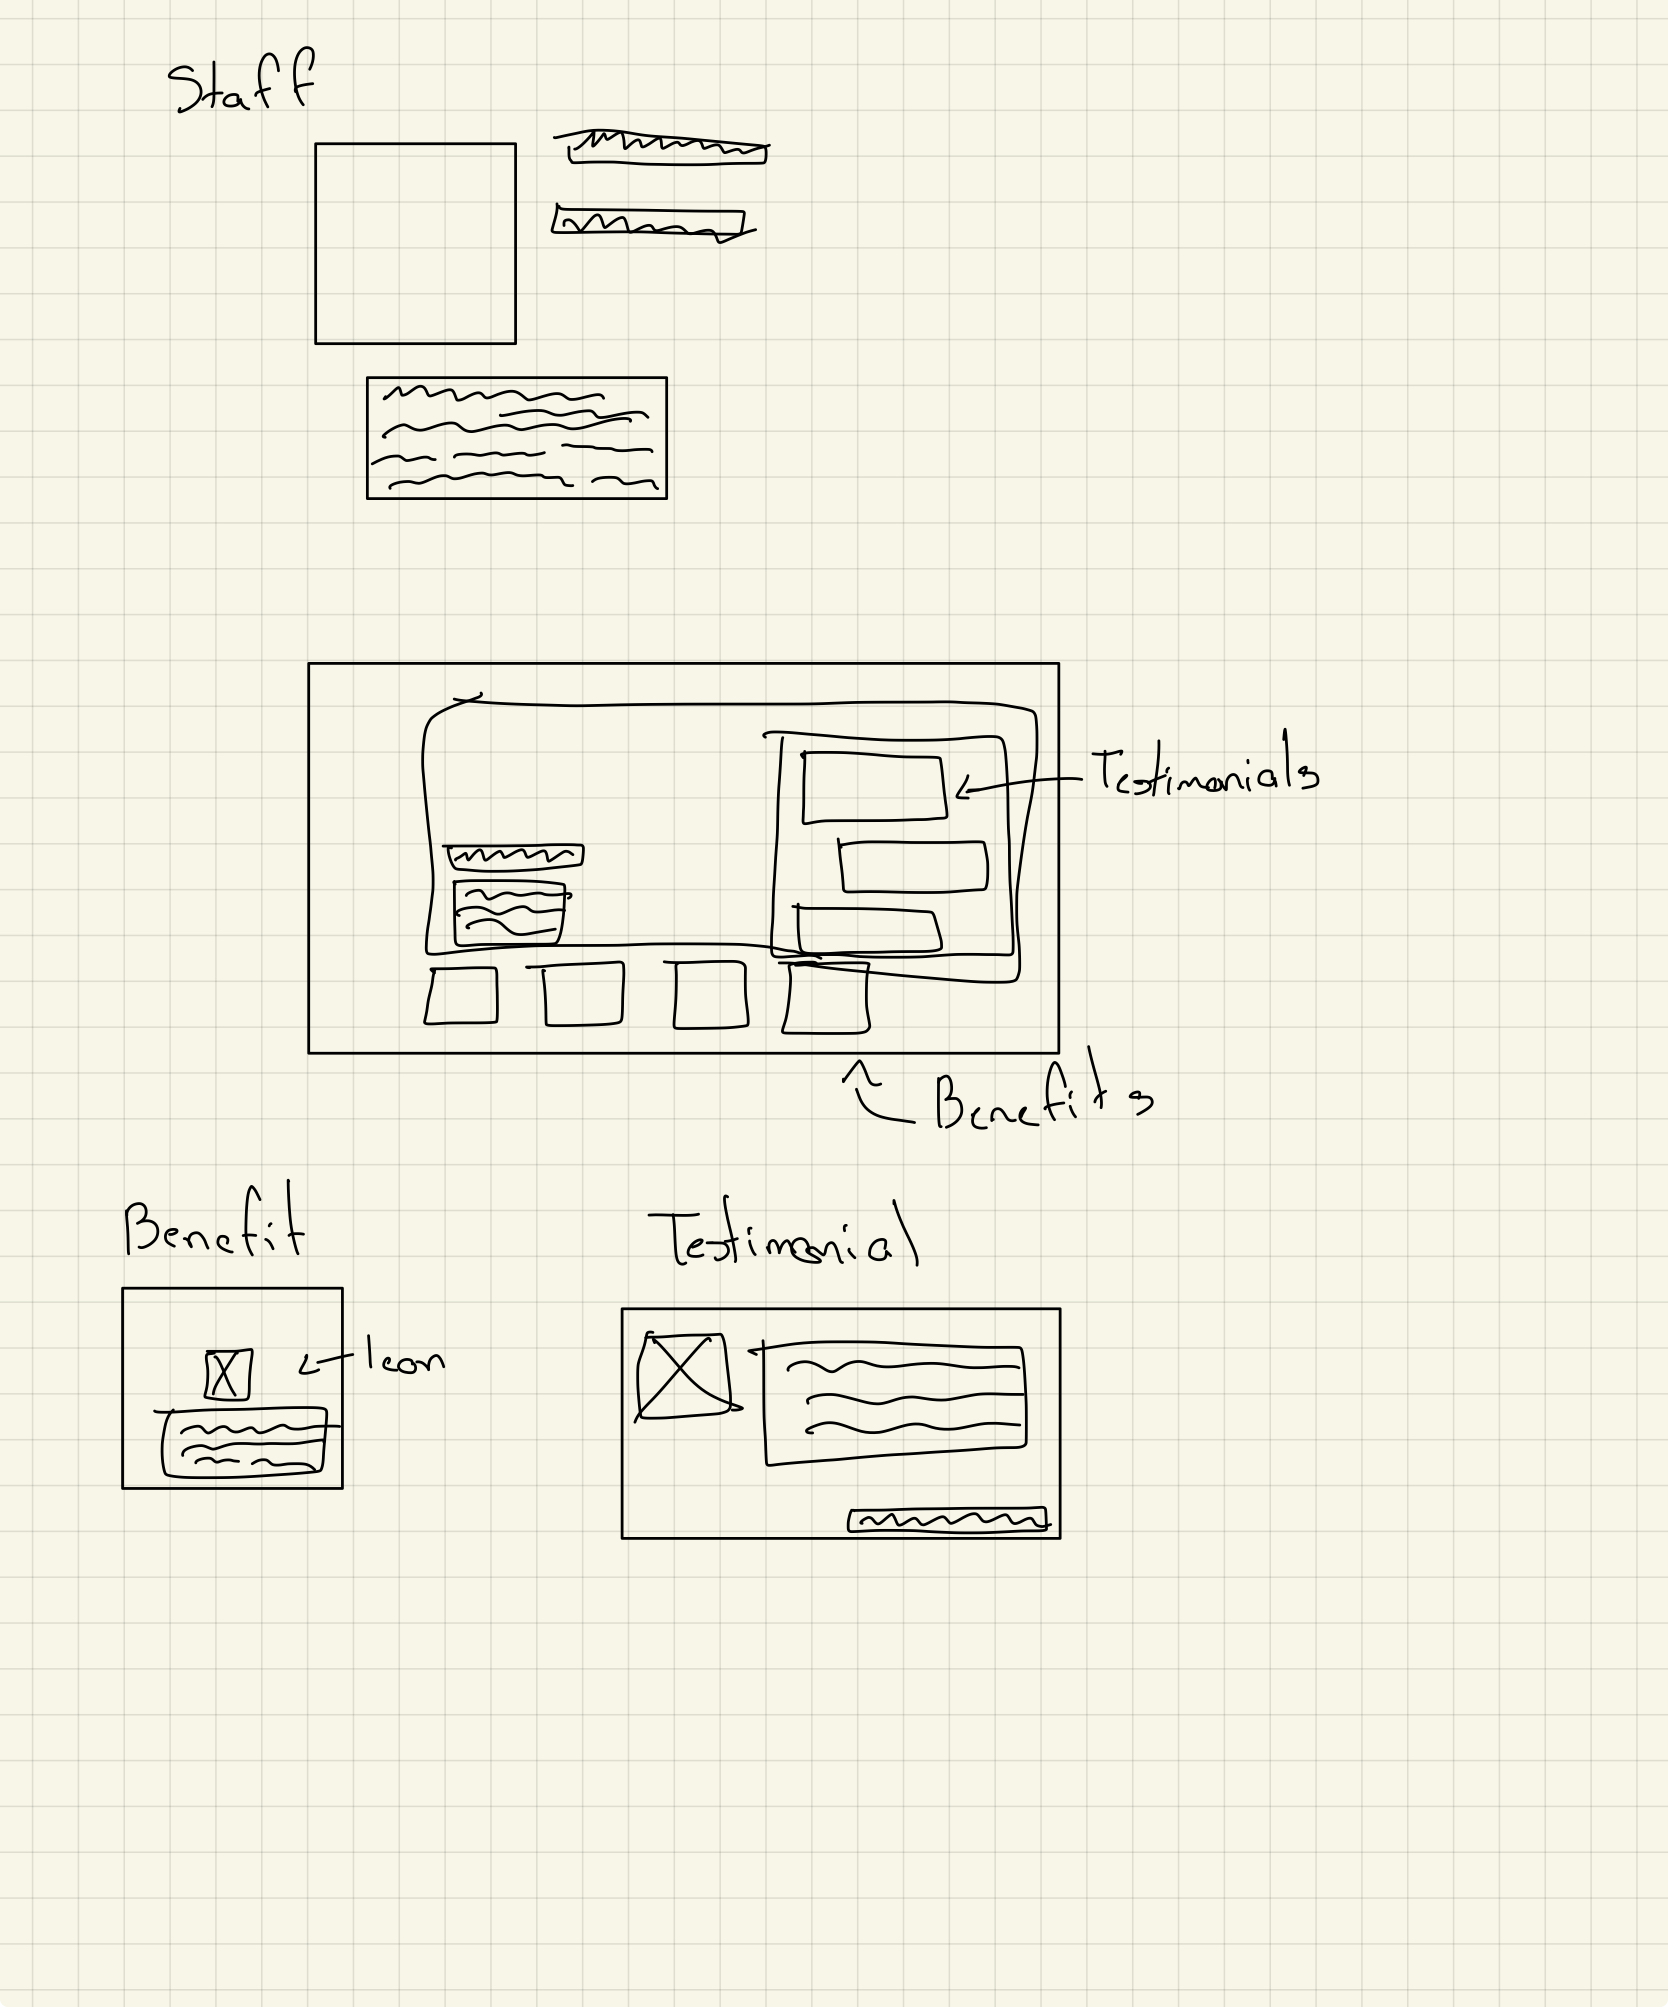 Staff
Testimonials
Benefits
Benefit
Testimonial
Icon